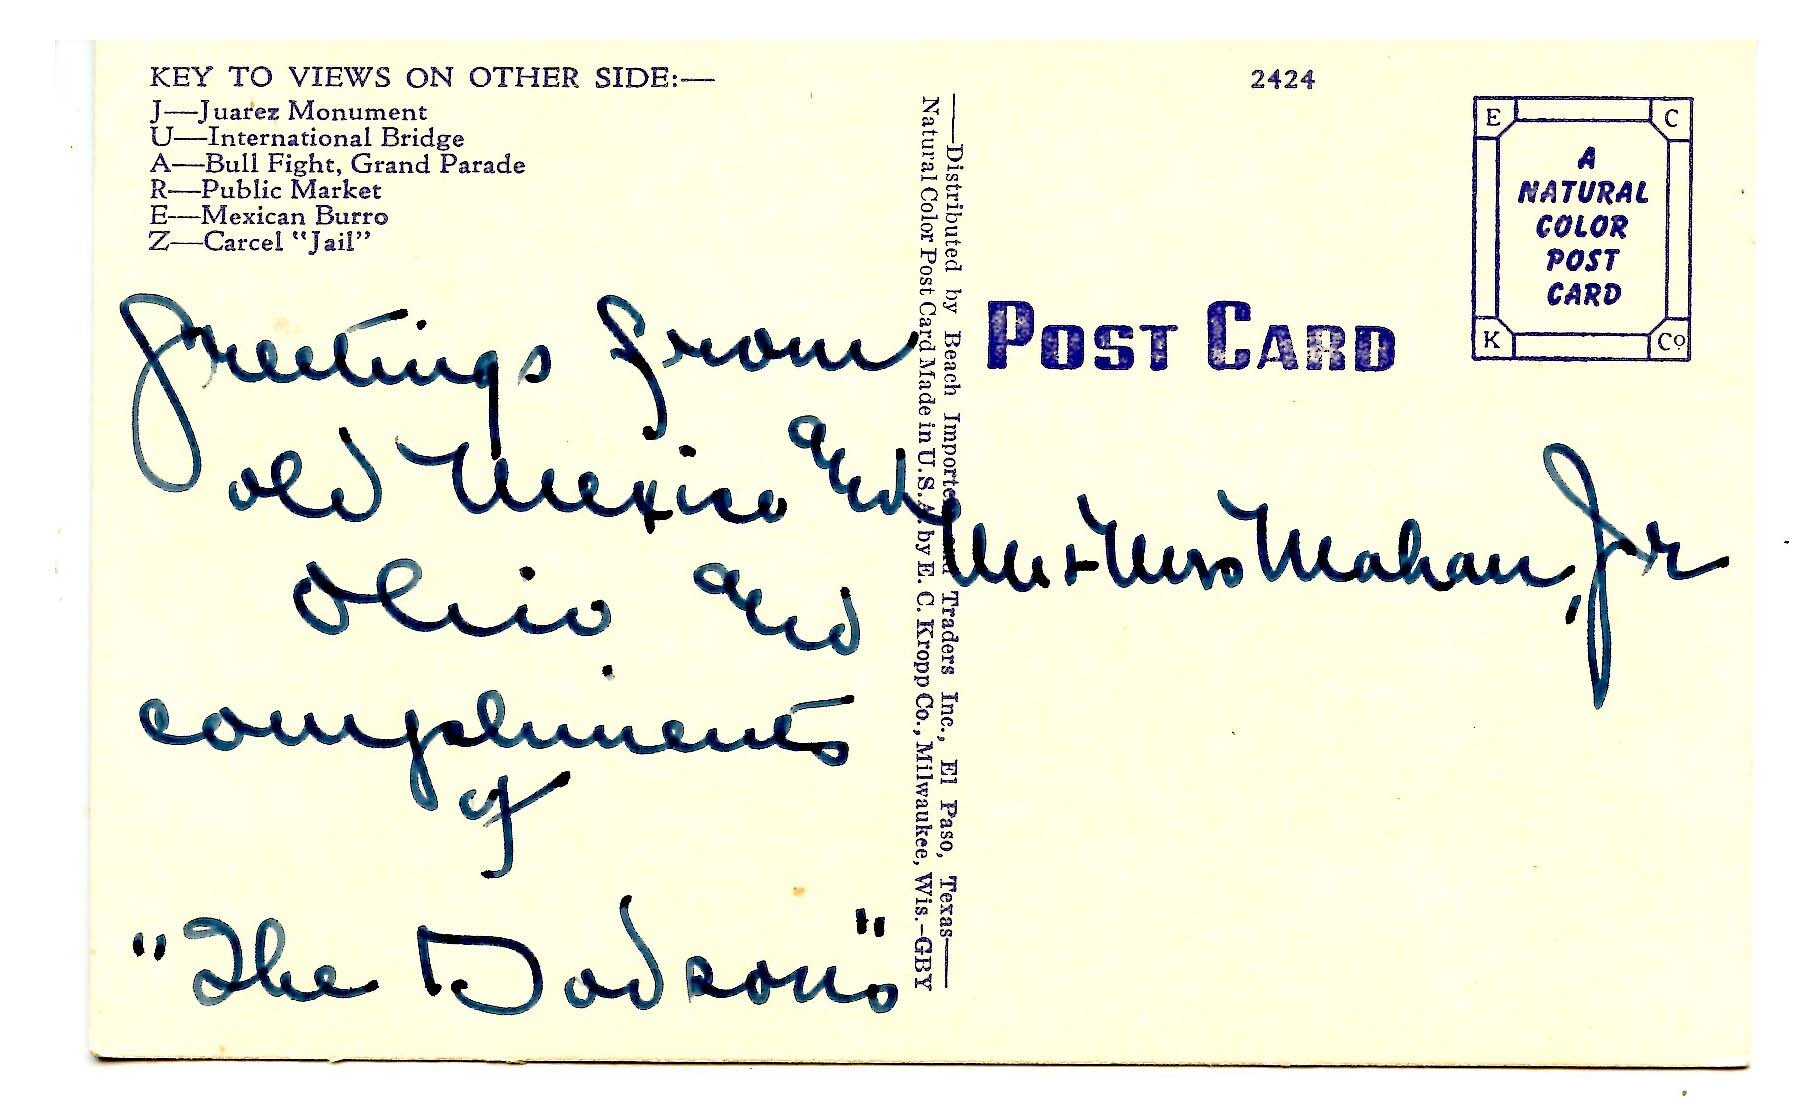 KEY TO VIEWS ON OTHER SIDE:—
J—Juarez Monument
U—International Bridge
A—Bull Fight, Grand Parade
R—Public Market
E—Mexican Burro
Z—Carcel "Jail"
Greetings from
old Mexico and
Ohio and
compliments
of
"The Dodsons"
—Distributed by Beach Imported Traders Inc., El Paso, Texas—
Natural Color Post Card Made in U.S.A. by E. C. Kropp Co., Milwaukee, Wis.-GBY
2424
E C
A
NATURAL
COLOR
POST
CARD
K Co
POST CARD
Mr + Mrs Mahan, Jr